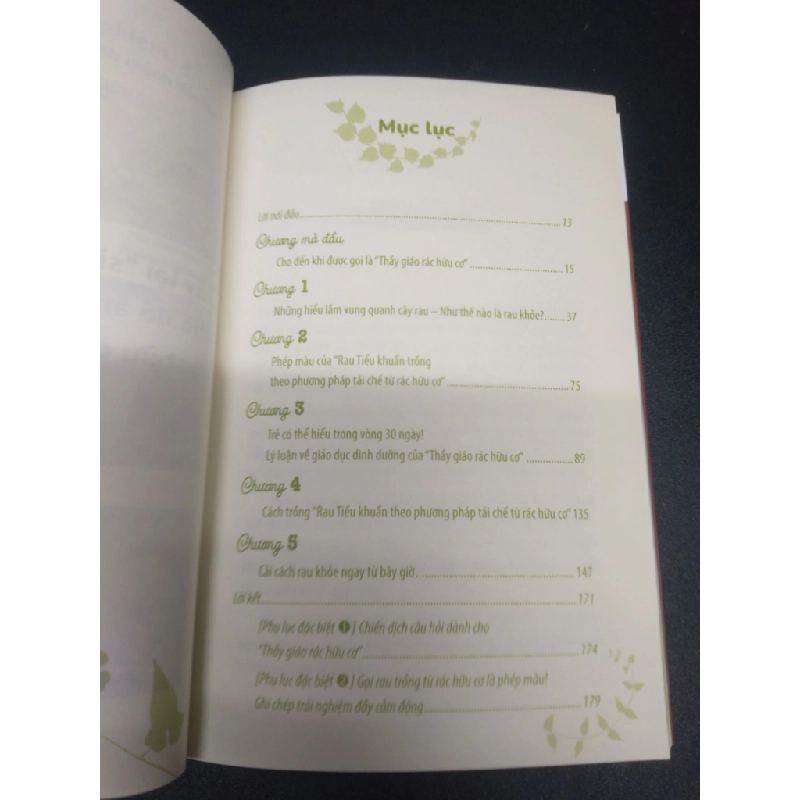 Mục lục
Lời nói đầu........ 13
Chương mở đầu
Cho đến khi được gọi là "Thầy giáo rác hữu cơ"........ 15
Chương 1
Những hiểu lầm xung quanh cây rau – Như thế nào là rau khỏe?........ 37
Chương 2
Phép màu của "Rau Tiểu khuẩn trồng
theo phương pháp tái chế từ rác hữu cơ"........ 75
Chương 3
Trẻ có thể hiểu trong vòng 30 ngày!
Lý luận về giáo dục dinh dưỡng của "Thầy giáo rác hữu cơ"........ 89
Chương 4
Cách trồng "Rau Tiểu khuẩn theo phương pháp tái chế từ rác hữu cơ" 135
Chương 5
Cải cách rau khỏe ngay từ bây giờ........ 147
Lời kết........ 171
[Phụ lục đặc biệt ❶] Chiến dịch câu hỏi dành cho
"Thầy giáo rác hữu cơ"........ 174
[Phụ lục đặc biệt ❷] Gọi rau trồng từ rác hữu cơ là phép màu!
Ghi chép trải nghiệm đầy cảm động........ 179